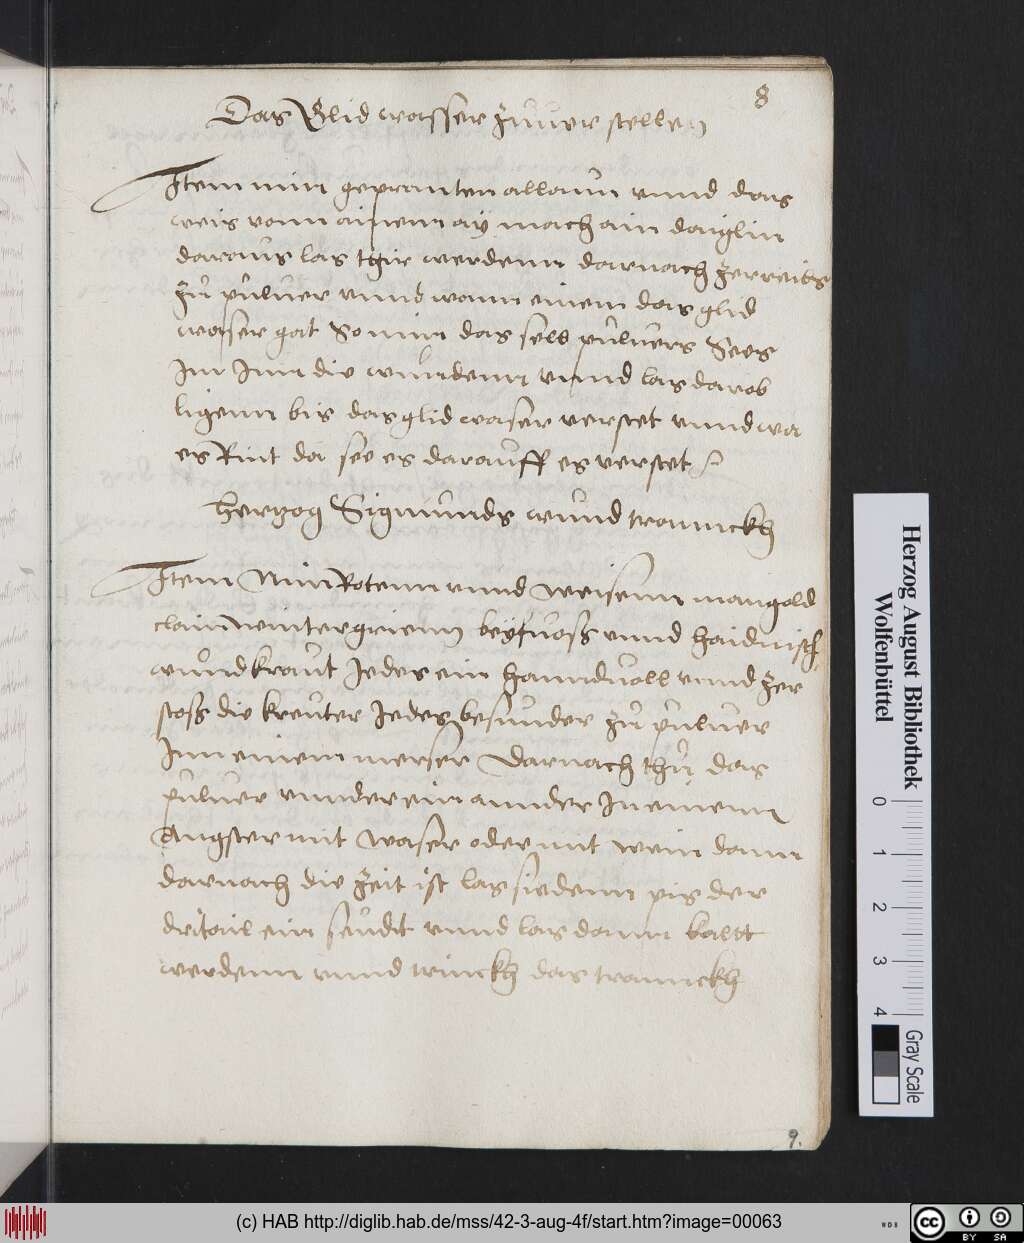 8
Das Glid wasser zuuerstellen
Item nim gepranten allaun vnnd das
weis vonn ainem ay mach ain daiglin
daraus las thür werdenn darnach zerreibs
zu puluer vnnd wann einem das glid
waser gat So nim das selb puluers Sees
Im Inn die wundenn vnnd las darob
ligenn bis das glid waser verstet vnnd wa
es Rint da see es darauff es verstet
Hertzog Sigmunds wund trannckh
Item Nim Rotenn vnnd weisenn mangold
clain wintergrienn beyfuoss vnnd haidnisch
wundkraut Jedes ein hanndvoll vnnd zer
stoss die kreuter Jedes besunder zu puluer
Inn einem merser Darnach thu das
puluer vnnder ein annder In einenn
Angster mit waser oder mit wein dann
darnach die zeit ist las siedenn pis der
dritail ein seudt vnnd las dann kaltt
werdenn vnnd trinckh das tranckh
9.
Herzog August Bibliothek
Wolfenbüttel
0 1 2 3 4
Gray Scale
(c) HAB http://diglib.hab.de/mss/42-3-aug-4f/start.htm?image=00063
WDB
CC BY SA